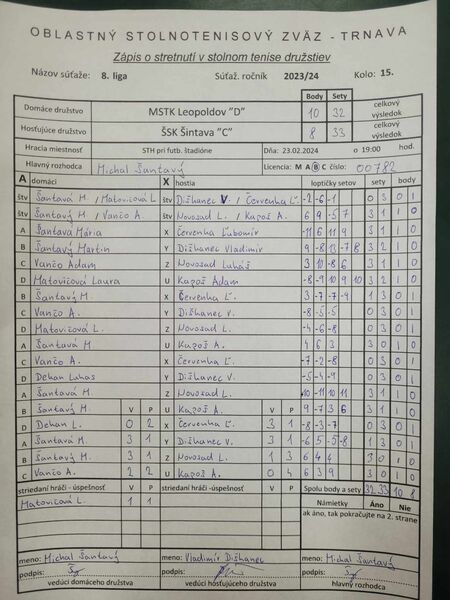 OBLASTNÝ STOLNOTENISOVÝ ZVÄZ - TRNAVA
Zápis o stretnutí v stolnom tenise družstiev
Názov súťaže: 8. liga Súťaž. ročník 2023/24 Kolo: 15.
Body Sety celkový
Domáce družstvo MSTK Leopoldov "D" 10 32 výsledok
Hosťujúce družstvo ŠSK Šintava "C" 8 33 celkový výsledok
Hracia miestnosť STH pri futb. štadióne Dňa: 23.02.2024 o 19:00 hod.
Hlavný rozhodca Michal Šantavý Licencia: M A B C číslo: 00782
A domáci X hostia loptičky setov sety body
štv Šantavá M. / Matovičová L. štv Dižhanec V. / Červenka Ľ. -2 -6 -1 0 3 0 1
štv Šantavý M. / Vančo A. štv Novosad L. / Kapoš A. 6 9 -5 7 3 1 1 0
A Šantavá Mária X Červenka Ľubomír -11 6 11 9 3 1 1 0
B Šantavý Martin Y Dižhanec Vladimír 9 -8 13 -7 8 3 2 1 0
C Vančo Adam Z Novosad Lukáš 3 10 -8 6 3 1 1 0
D Matovičová Laura U Kapoš Adam -8 -9 10 9 10 3 2 1 0
B Šantavý M. X Červenka Ľ. 3 -7 -7 -9 1 3 0 1
C Vančo A. Y Dižhanec V. -8 -5 -5 0 3 0 1
D Matovičová L. Z Novosad L. -4 -6 -8 0 3 0 1
A Šantavá M U Kapoš A. 4 6 3 3 0 1 0
C Vančo A. X Červenka Ľ. -7 -2 -8 0 3 0 1
D Dekan Lukas Y Dižhanec V. -5 -4 -9 0 3 0 1
A Šantavá M Z Novosad L. -10 -11 10 11 3 1 1 0
B Šantavý M. V P U Kapoš A. V P 9 -7 3 6 3 1 1 0
D Dekan L. 0 2 X Červenka Ľ. 3 1 -8 -3 -7 0 3 0 1
A Šantavá M 3 1 Y Dižhanec V. 3 1 -6 5 -5 -8 1 3 0 1
B Šantavý M. 3 1 Z Novosad L. 1 3 6 4 4 3 0 1 0
C Vančo A. 2 2 U Kapoš A. 0 4 6 3 9 3 0 1 0
striedaní hráči -úspešnosť striedaní hráči -úspešnosť Spolu body a sety 32 33 10 8
Matovičová L. 1 1 Námietky Áno Nie
ak áno, tak pokračujte na 2. strane
meno: Michal Šantavý meno: Vladimír Dižhanec meno: Michal Šantavý
podpis: podpis: podpis:
vedúci domáceho družstva vedúci hosťujúceho družstva hlavný rozhodca